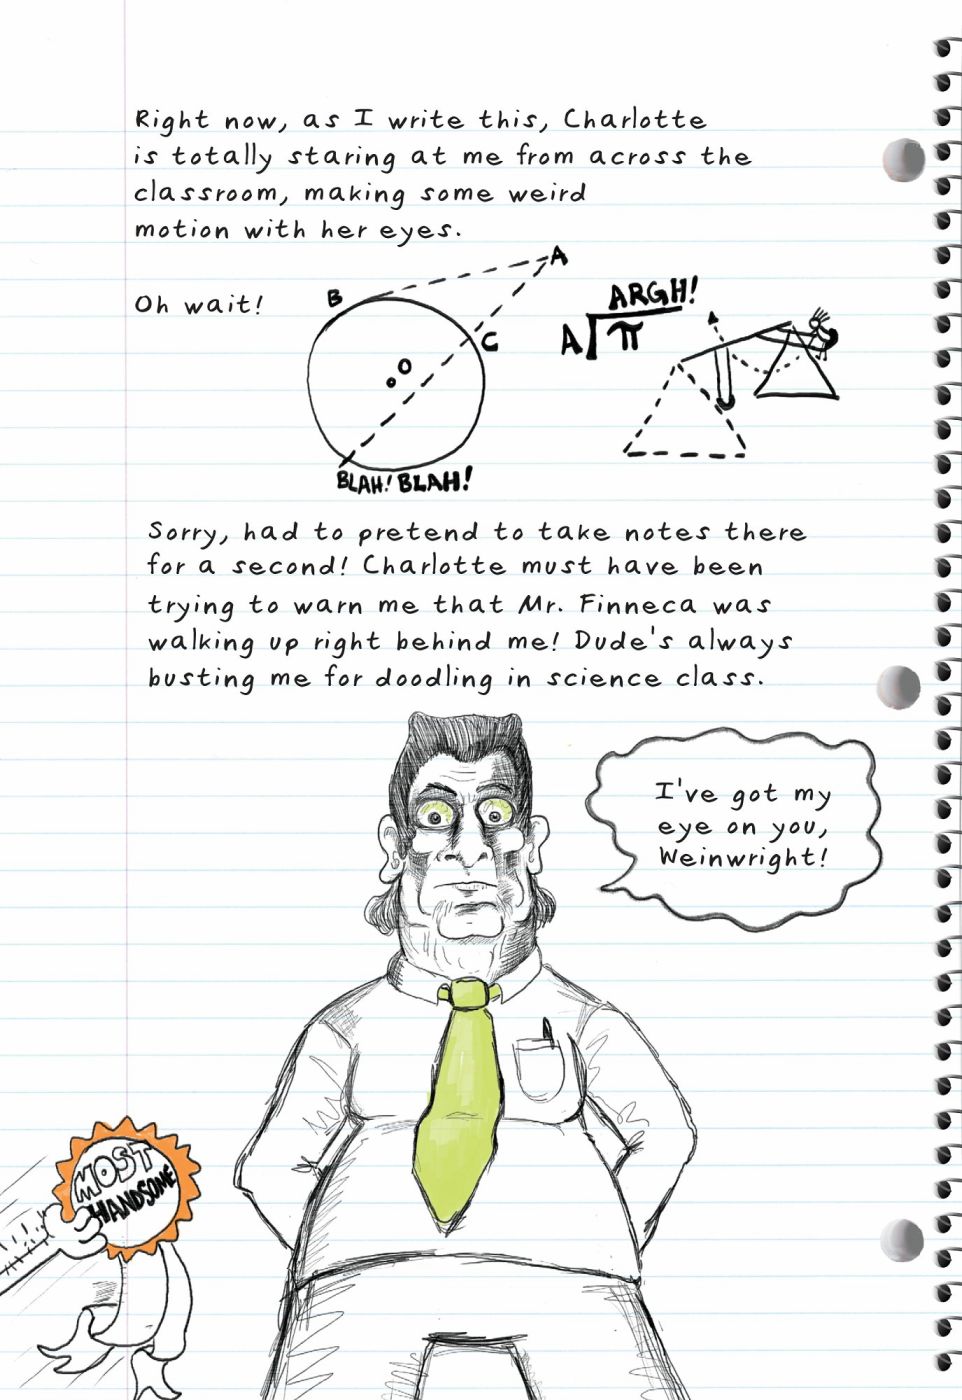 Right now, as I write this, Charlotte
is totally staring at me from across the
classroom, making some weird
motion with her eyes.
Oh wait!
A
B
C
O
BLAH! BLAH!
ARGH!
A π
Sorry, had to pretend to take notes there
for a second! Charlotte must have been
trying to warn me that Mr. Finneca was
walking up right behind me! Dude's always
busting me for doodling in science class.
I've got my
eye on you,
Weinwright!
MOST
HANDSOME